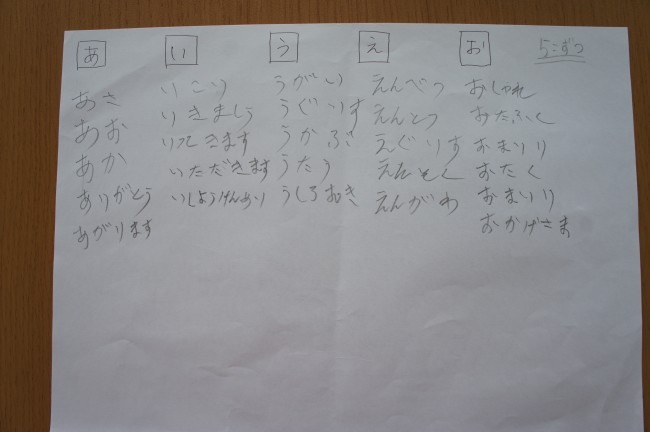 あ
あさ
あお
あか
ありがとう
あがります
い
いこい
いきましう
いってきます
いただきます
いしょうけんめい
う
うがい
うぐいす
うたう
うしろむき
え
えんぺつ
えんとつ
えぐりす
えんがわ
お
おしゃれ
おたふく
おまいり
おたく
おまいり
おかげさま
5こずつ